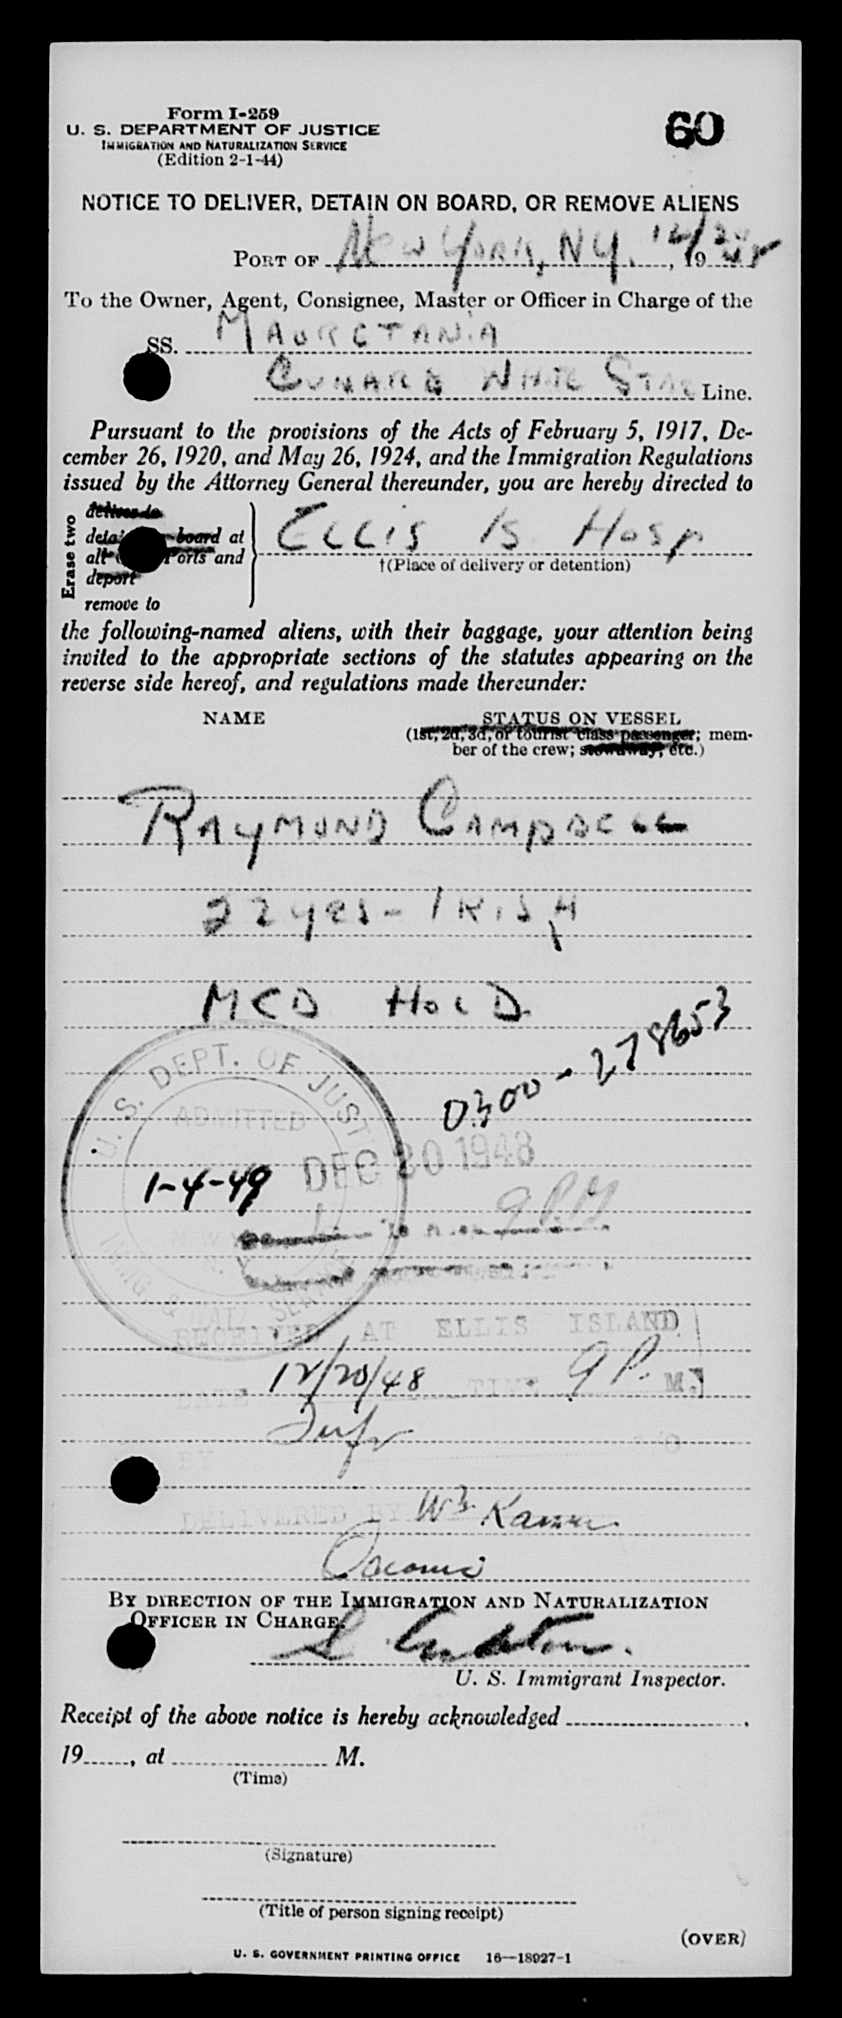 Form I-259
60
U. S. DEPARTMENT OF JUSTICE
IMMIGRATION AND NATURALIZATION SERVICE
(Edition 2-1-44)
NOTICE TO DELIVER, DETAIN ON BOARD, OR REMOVE ALIENS
PORT OF NEW YORK, NY. , 19
To the Owner, Agent, Consignee, Master or Officer in Charge of the
SS. MAURETANIA
CUNARD WHITE STAR Line.
Pursuant to the provisions of the Acts of February 5, 1917, De-
cember 26, 1920, and May 26, 1924, and the Immigration Regulations
issued by the Attorney General thereunder, you are hereby directed to
Erase two
deliver to
board at
Ports and
deport
remove to
ELLIS IS HOSP
†(Place of delivery or detention)
the following-named aliens, with their baggage, your attention being
invited to the appropriate sections of the statutes appearing on the
reverse side hereof, and regulations made thereunder:
NAME STATUS ON VESSEL
(1st, 2d, 3d, or tourist class passenger; mem-
ber of the crew; stowaway, etc.)
RAYMOND CAMPBELL
22 yrs - IRISH
MED HOLD
0300-278653
U. S. DEPT. OF JUSTICE
ADMITTED
DEC 20 1948
1-4-49
9 P.M
RECEIVED AT ELLIS ISLAND
DATE 12/20/48 TIME 9 P. M.
BY
DELIVERED BY
BY DIRECTION OF THE IMMIGRATION AND NATURALIZATION
OFFICER IN CHARGE.
U. S. Immigrant Inspector.
Receipt of the above notice is hereby acknowledged
19 , at M.
(Time)
(Signature)
(Title of person signing receipt)
(OVER)
U. S. GOVERNMENT PRINTING OFFICE 16—18927-1